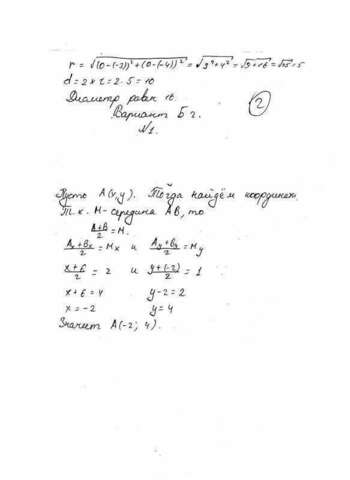 r = √(0-(-3))²+(0-(-4))² = √3²+4² = √9+16 = √25 = 5
d = 2×r = 2·5 = 10
Диаметр равен 10.
2
Вариант Б 2.
№1.
Пусть A(x,y). Тогда найдём координаты.
Т.к. M-середина AB, то
A+B/2 = M.
Ax+Bx/2 = Mx и Ay+By/2 = My
x+6/2 = 2 и y+(-2)/2 = 1
x+6 = 4 y-2 = 2
x = -2 y = 4
Значит A(-2; 4).